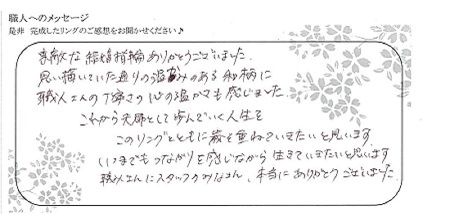 職人へのメッセージ
是非 完成したリングのご感想をお聞かせください♪
素敵な結婚指輪ありがとうございました。
思い描いていた通りの温かみのある和柄に
職人さんの丁寧さや心の温かさも感じました。
これから夫婦として歩んでいく人生を
このリングとともに歳を重ねていきたいと思います。
いつまでもつながりを感じながら生きていきたいと思います
職人さんにスタッフのみなさん、本当にありがとうございました。